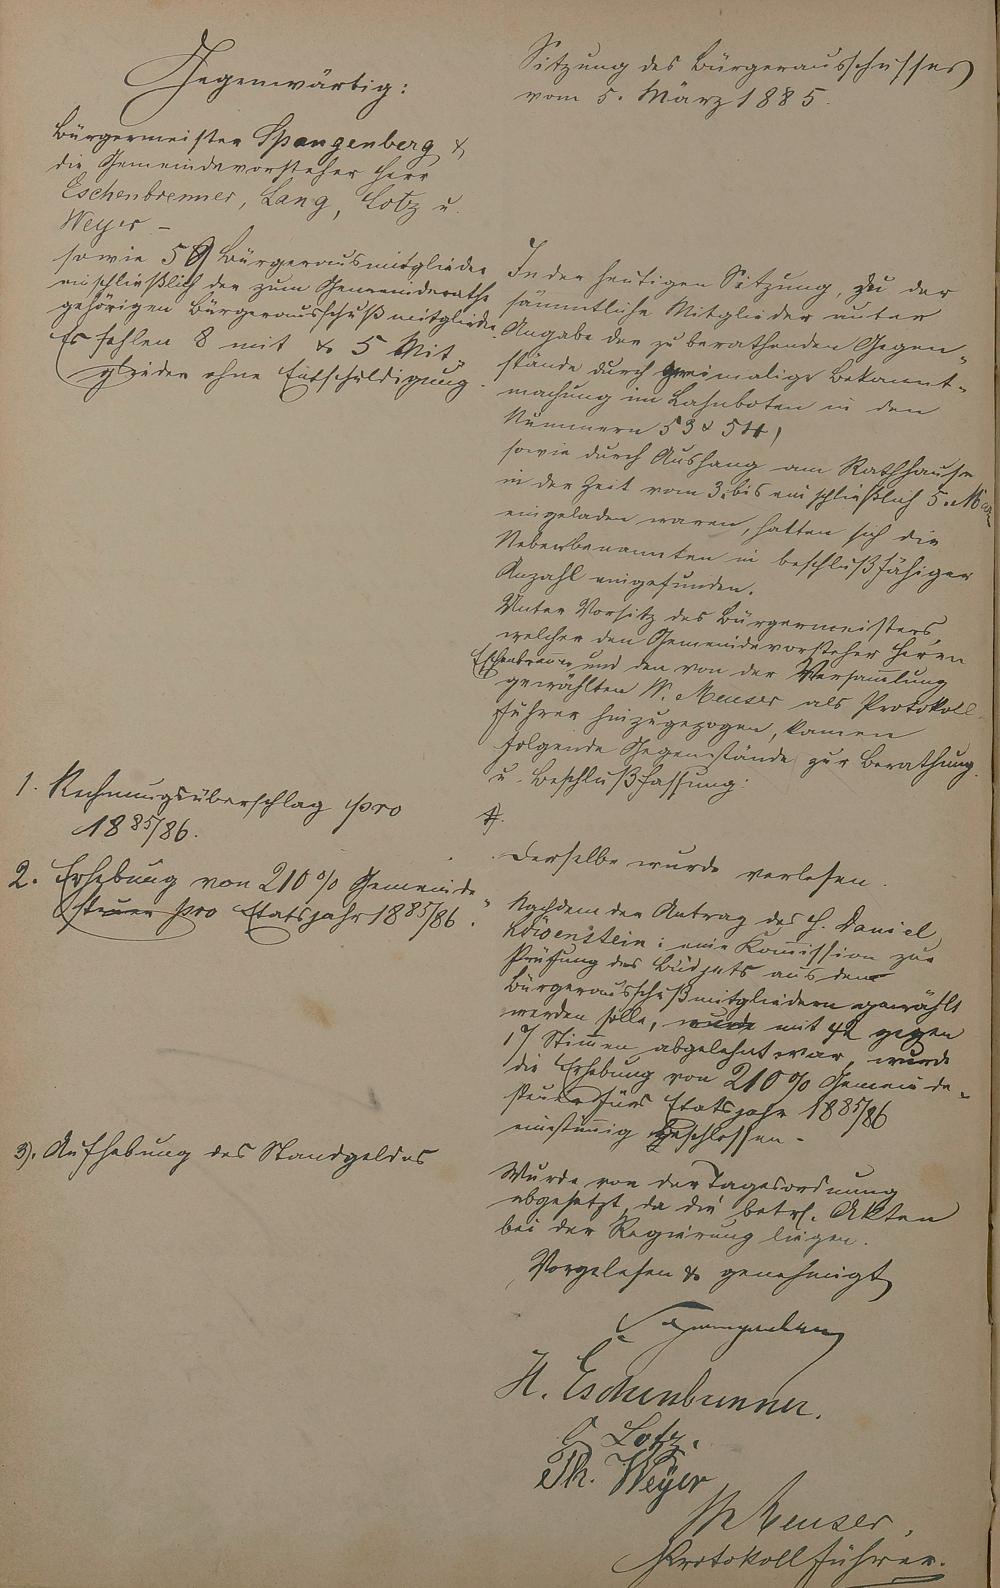 Gegenwärtig:
Bürgermeister Spangenberg &
die Gemeindevorsteher Herr
Eschenbrenner, Lang, Lotz u.
Weyer –
sowie 58 Bürgerausmitglieder
einschließlich der zum Gemeinderathe
gehörigen Bürgerausschußmitglieder.
Es fehlen 8 mit & 5 Mit-
glieder ohne Entschuldigung.
Sitzung des Bürgerausschusses
vom 5. März 1885.
In der heutigen Sitzung, zu der
sämmtliche Mitglieder unter
Angabe der zu berathenden Gegen-
stände durch zweimalige Bekannt-
machung im Lahnboten in den
Nummern 53 & 54,
sowie durch Aushang am Rathhause
in der Zeit vom 3. bis einschließlich 5. März
eingeladen waren, hatten sich die
Nebenbenannten in beschlußfähiger
Anzahl eingefunden.
Unter Vorsitz des Bürgermeisters,
welcher den Gemeindevorsteher Herrn
Eschenbrenner und den von der Versammlung
gewählten W. Meuser als Protokoll-
führer hinzugezogen, kamen
folgende Gegenstände zur Berathung
u. Beschlußfassung:
1. Rechnungsüberschlag pro
1885/86.
Derselbe wurde verlesen.
2. Erhebung von 210 % Gemeinde-
steuer pro Etatsjahr 1885/86.
Nachdem der Antrag des H. Daniel
Löwenstein: eine Kommission zur
Prüfung des Büdjets aus den
Bürgerausschußmitgliedern gewählt
werden solle, wurde mit 42 gegen
17 Stimmen abgelehnt war, wurde
die Erhebung von 210 % Gemeinde-
steuer fürs Etatsjahr 1885/86
einstimmig beschlossen –
3). Aufhebung des Standgeldes
Wurde von der Tagesordnung
abgesetzt, da die betrf. Akten
bei der Regierung liegen.
Vorgelesen & genehmigt
Spangenberg
H. Eschenbrenner.
Lotz.
Th. Weyer
W Meuser,
Protokollführer.